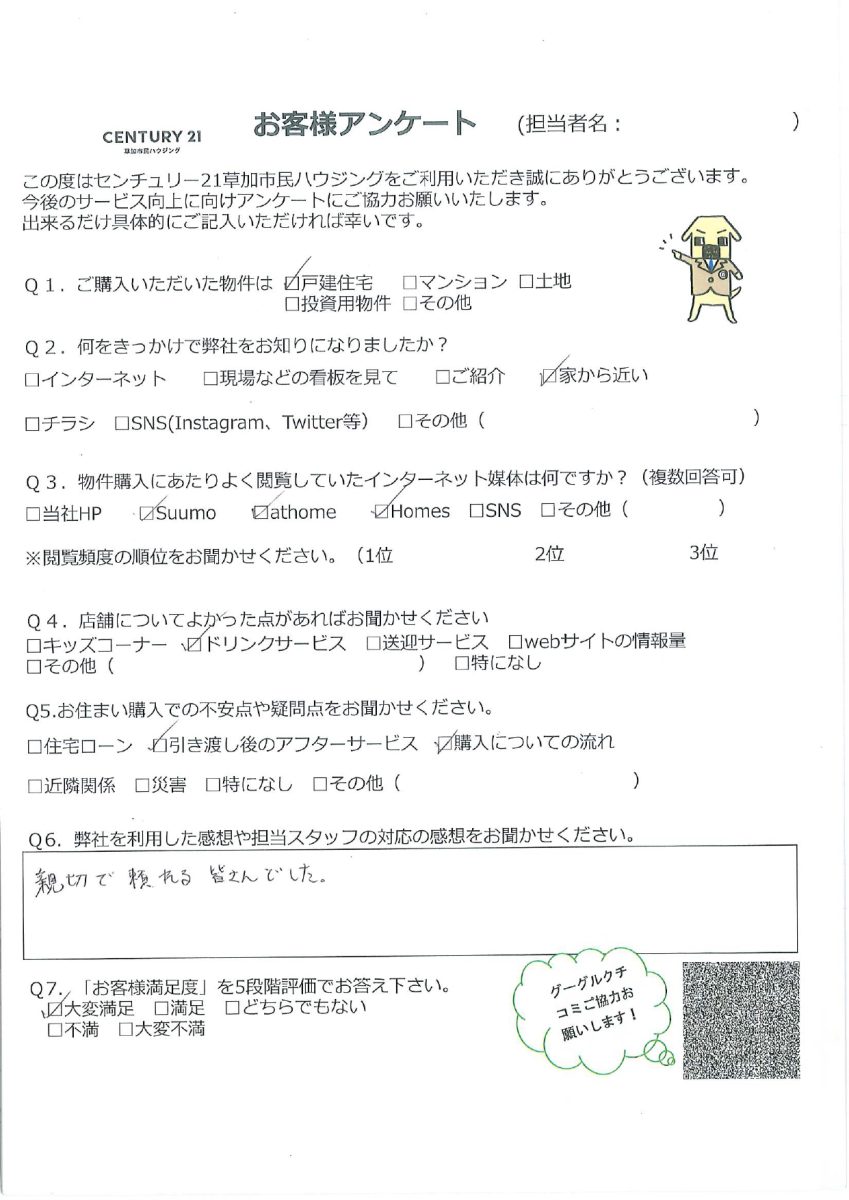 CENTURY 21
草加市民ハウジング
お客様アンケート (担当者名： )
この度はセンチュリー21草加市民ハウジングをご利用いただき誠にありがとうございます。
今後のサービス向上に向けアンケートにご協力お願いいたします。
出来るだけ具体的にご記入いただければ幸いです。
Ｑ１．ご購入いただいた物件は ☑戸建住宅 □マンション □土地
□投資用物件 □その他
Ｑ２．何をきっかけで弊社をお知りになりましたか？
□インターネット □現場などの看板を見て □ご紹介 ☑家から近い
□チラシ □SNS(Instagram、Twitter等) □その他（ ）
Ｑ３．物件購入にあたりよく閲覧していたインターネット媒体は何ですか？（複数回答可）
□当社HP ☑Suumo ☑athome ☑Homes □SNS □その他（ ）
※閲覧頻度の順位をお聞かせください。（1位 2位 3位
Ｑ４．店舗についてよかった点があればお聞かせください
□キッズコーナー ☑ドリンクサービス □送迎サービス □webサイトの情報量
□その他（ ） □特になし
Q5.お住まい購入での不安点や疑問点をお聞かせください。
□住宅ローン ☑引き渡し後のアフターサービス ☑購入についての流れ
□近隣関係 □災害 □特になし □その他（ ）
Q6．弊社を利用した感想や担当スタッフの対応の感想をお聞かせください。
親切で頼れる皆さんでした。
Q7．「お客様満足度」を5段階評価でお答え下さい。
☑大変満足 □満足 □どちらでもない
□不満 □大変不満
グーグルクチ
コミご協力お
願いします！